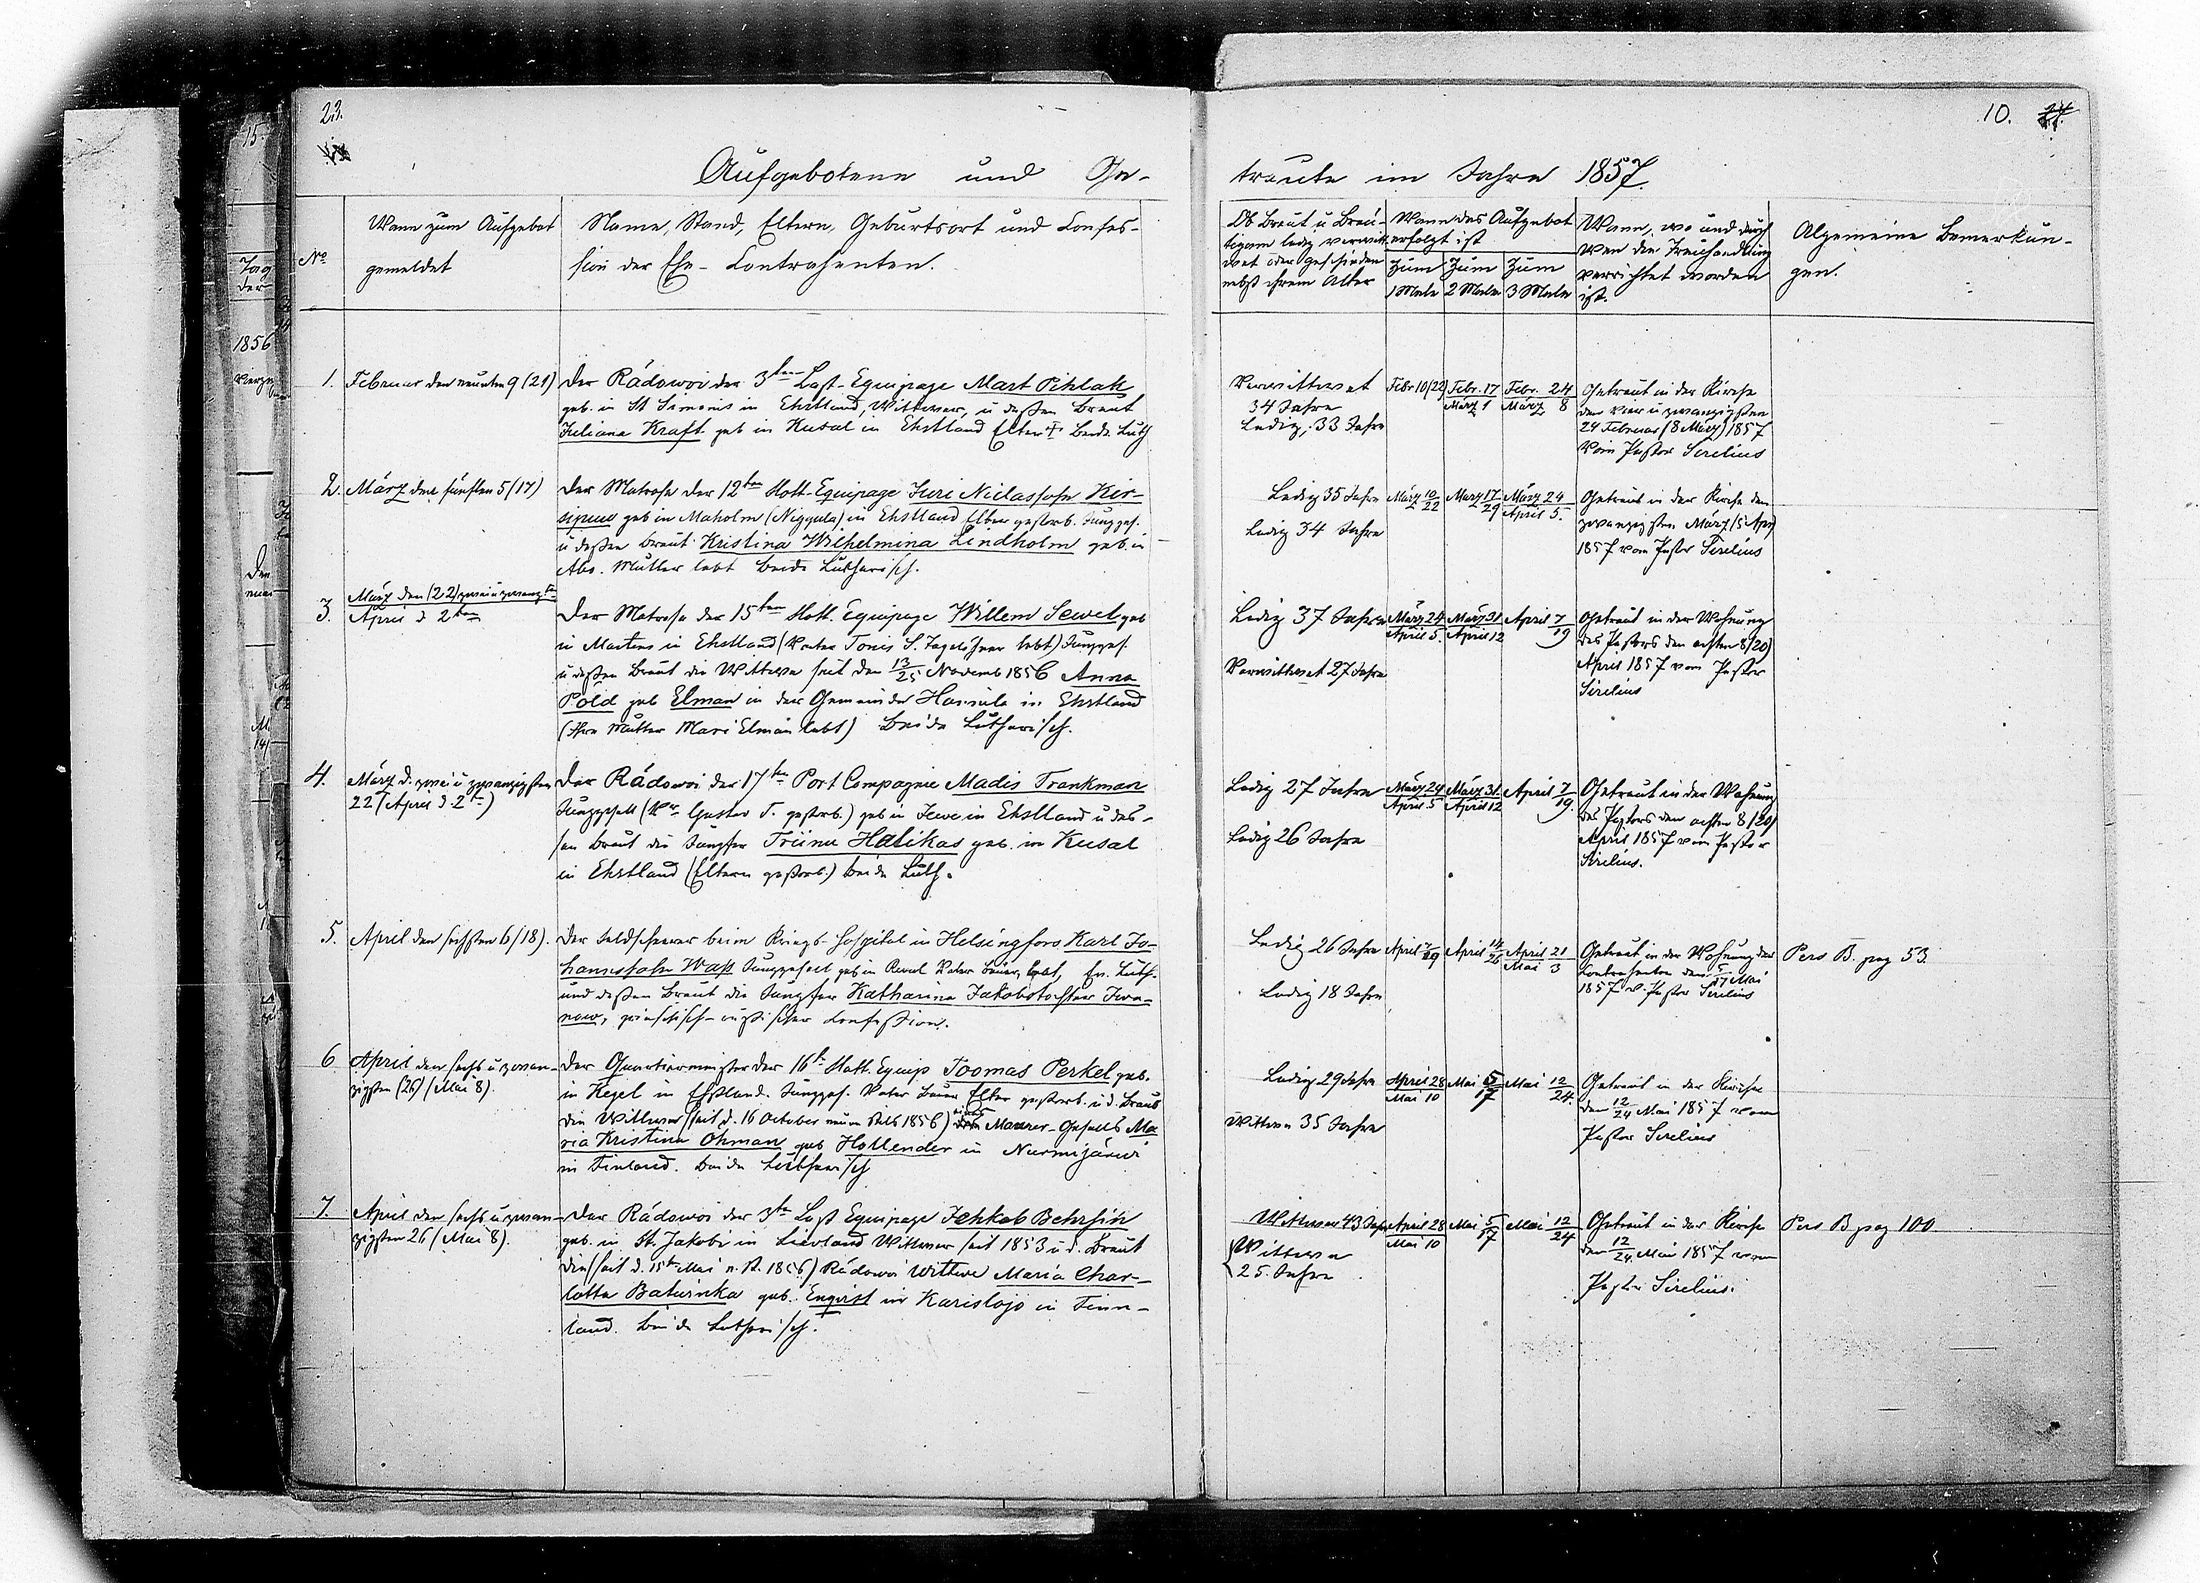 23.
Aufgebotene und Ge-
No
Wann zum Aufgebot
gemeldet
Name, Stand, Eltern, Geburtsort und Confes-
sion der Ehe-Contrahenten.
1. Februar den neunten 9 (21)
Der Rádowoi der 3ten Last-Equipage Mart Pihlak
geb. in St Simonis in Ehstland, Wittwer, u deßen Braut
Juliana Kraft geb in Kusal in Ehstland Eltern † beide Luth
2. März den fünften 5/17)
Der Matrose der 12ten Flott-Equipage Juri Niclassohn Kir-
sipuu geb in Maholm (Niggula) in Ehstland Eltern gestorb. Jungges.
u deßen Braut Kristina Wilhelmina Lindholm geb. in
Abo. Mutter lebt beide Lutherisch.
3. März den (22) zwei u zwanzigsten
April d 2ten
Der Matrose der 15ten Flott. Equipage Willem Sewel geb
in Martens in Ehstland (Vater Tonis S. Tagelöhner lebt) Jungges.
u deßen Braut die Wittwe seit den 13/25 Novemb 1856 Anna
Põld geb Elman in der Gemeinde Hannila in Ehstland
(Ihre Mutter Mari Elman lebt) Beide Lutherisch.
4. März d. zwei u zwanzigsten
22 (April d. 2ten)
Der Rádowoi der 17ten Port Compagnie Madis Trankman
Junggesell (Vr Gustav T. gestorb.) geb in Jewe in Ehstland u des-
sen Braut die Jungfer Triinu Halikas geb. in Kusal
in Ehstland (Eltern gestorb.) beide Luth.
5. April den sechsten 6/18).
Der Feldscheerer beim Kriegs-Hospital in Helsingfors Karl Jo-
hannssohn Waß Junggesell geb in Reval Vater Bauer, lebt, Ev. Luth.
und deßen Braut die Jungfer Katharina Jakobstochter Iwa-
now, griechisch-rußischer Confeßion.
6 April den sechs u zwan-
zigsten (26) (Mai 8).
Der Quartiermeister der 16t. Flott. Equip Toomas Perkel geb.
in Kegel in Ehstland. Jungges. Vater Bauer Elter gestorb. u d. Braut
die Wittwe (seit d. 16 October neuen Stils 1856) eines Maurer-Gesells Ma
ria Kristina Ohman geb Hollender in Nurmijärwi
in Finland. Beide Lutherisch
7. April den sechs u zwan-
zigsten 26 (Mai 8).
Der Rádowoi der 3ten Last Equipage Jehkab Behrsin
geb. in St. Jakobi in Lievland Wittwer seit 1853 u d. Braut
die (seit d. 15ten Mai n. St. 1856) Rádowoi Wittwe Maria Char-
lotta Baturinka geb. Engvist in Karislojo in Finn-
land. beide Lutherisch.
10.
traute im Jahre 1857.
Ob Braut u Bräu-
tigam ledig verwitt-
wet oder geschieden
nebst ihrem Alter
Wann das Aufgebot
erfolgt ist
Zum
1 Male
Zum
2 Male
Zum
3 Male
Wann, wo und durch
wen die Trauhandlung
verrichtet worden
ist.
Algemeine Bemerkun-
gen.
Verwittwet
34 Jahre
Ledig, 33 Jahre
Febr 10(22)
Febr. 17
März 1
Febr. 24
März 8
Getraut in der Kirche
den vier u zwanzigsten
24 Februar (8 März) 1857
vom Pastor Sirelius
Ledig 35 Jahre
Ledig 34 Jahre
März 10/22
März 17/29
März 24
April 5.
Getraut in der Kirche den
zwanzigsten März (5 Apr)
1857 vom Pastor Sirelius
Ledig 37 Jahre
Verwittwet 27 Jahre
März 24
April 5.
März 31
April 12
April 7/19
Getraut in der Wohnung
des Pastors den achten 8/20)
April 1857 vom Pastor
Sirelius
Ledig 27 Jahre
Ledig 26 Jahre
März 24
April 5
März 31.
April 12
April 7/19.
Getraut in der Wohnung
des Pastors den achten 8/20)
April 1857 vom Pastor
Sirelius.
Ledig 26 Jahre
Ledig 18 Jahre
April 7/19
April 14/26
April 21
Mai 3
Getraut in der Wohnung der
Contrahenten den 5/17 Mai
1857 v. Pastor Sirelius
Pers B. pag 53.
Ledig 29 Jahre
Wittwe 35 Jahre
April 28
Mai 10
Mai 5/17
Mai 12/24.
Getraut in der Kirche
den 12/24 Mai 1857 vom
Pastor Sirelius
Wittwer 43 Jahre
Wittwe
25. Jahre
April 28
Mai 10
Mai 5/17
Mai 12/24
Getraut in der Kirche
den 12/24 Mai 1857 vom
Pastor Sirelius.
Pers B pag 100
15.
Tag
der
1856